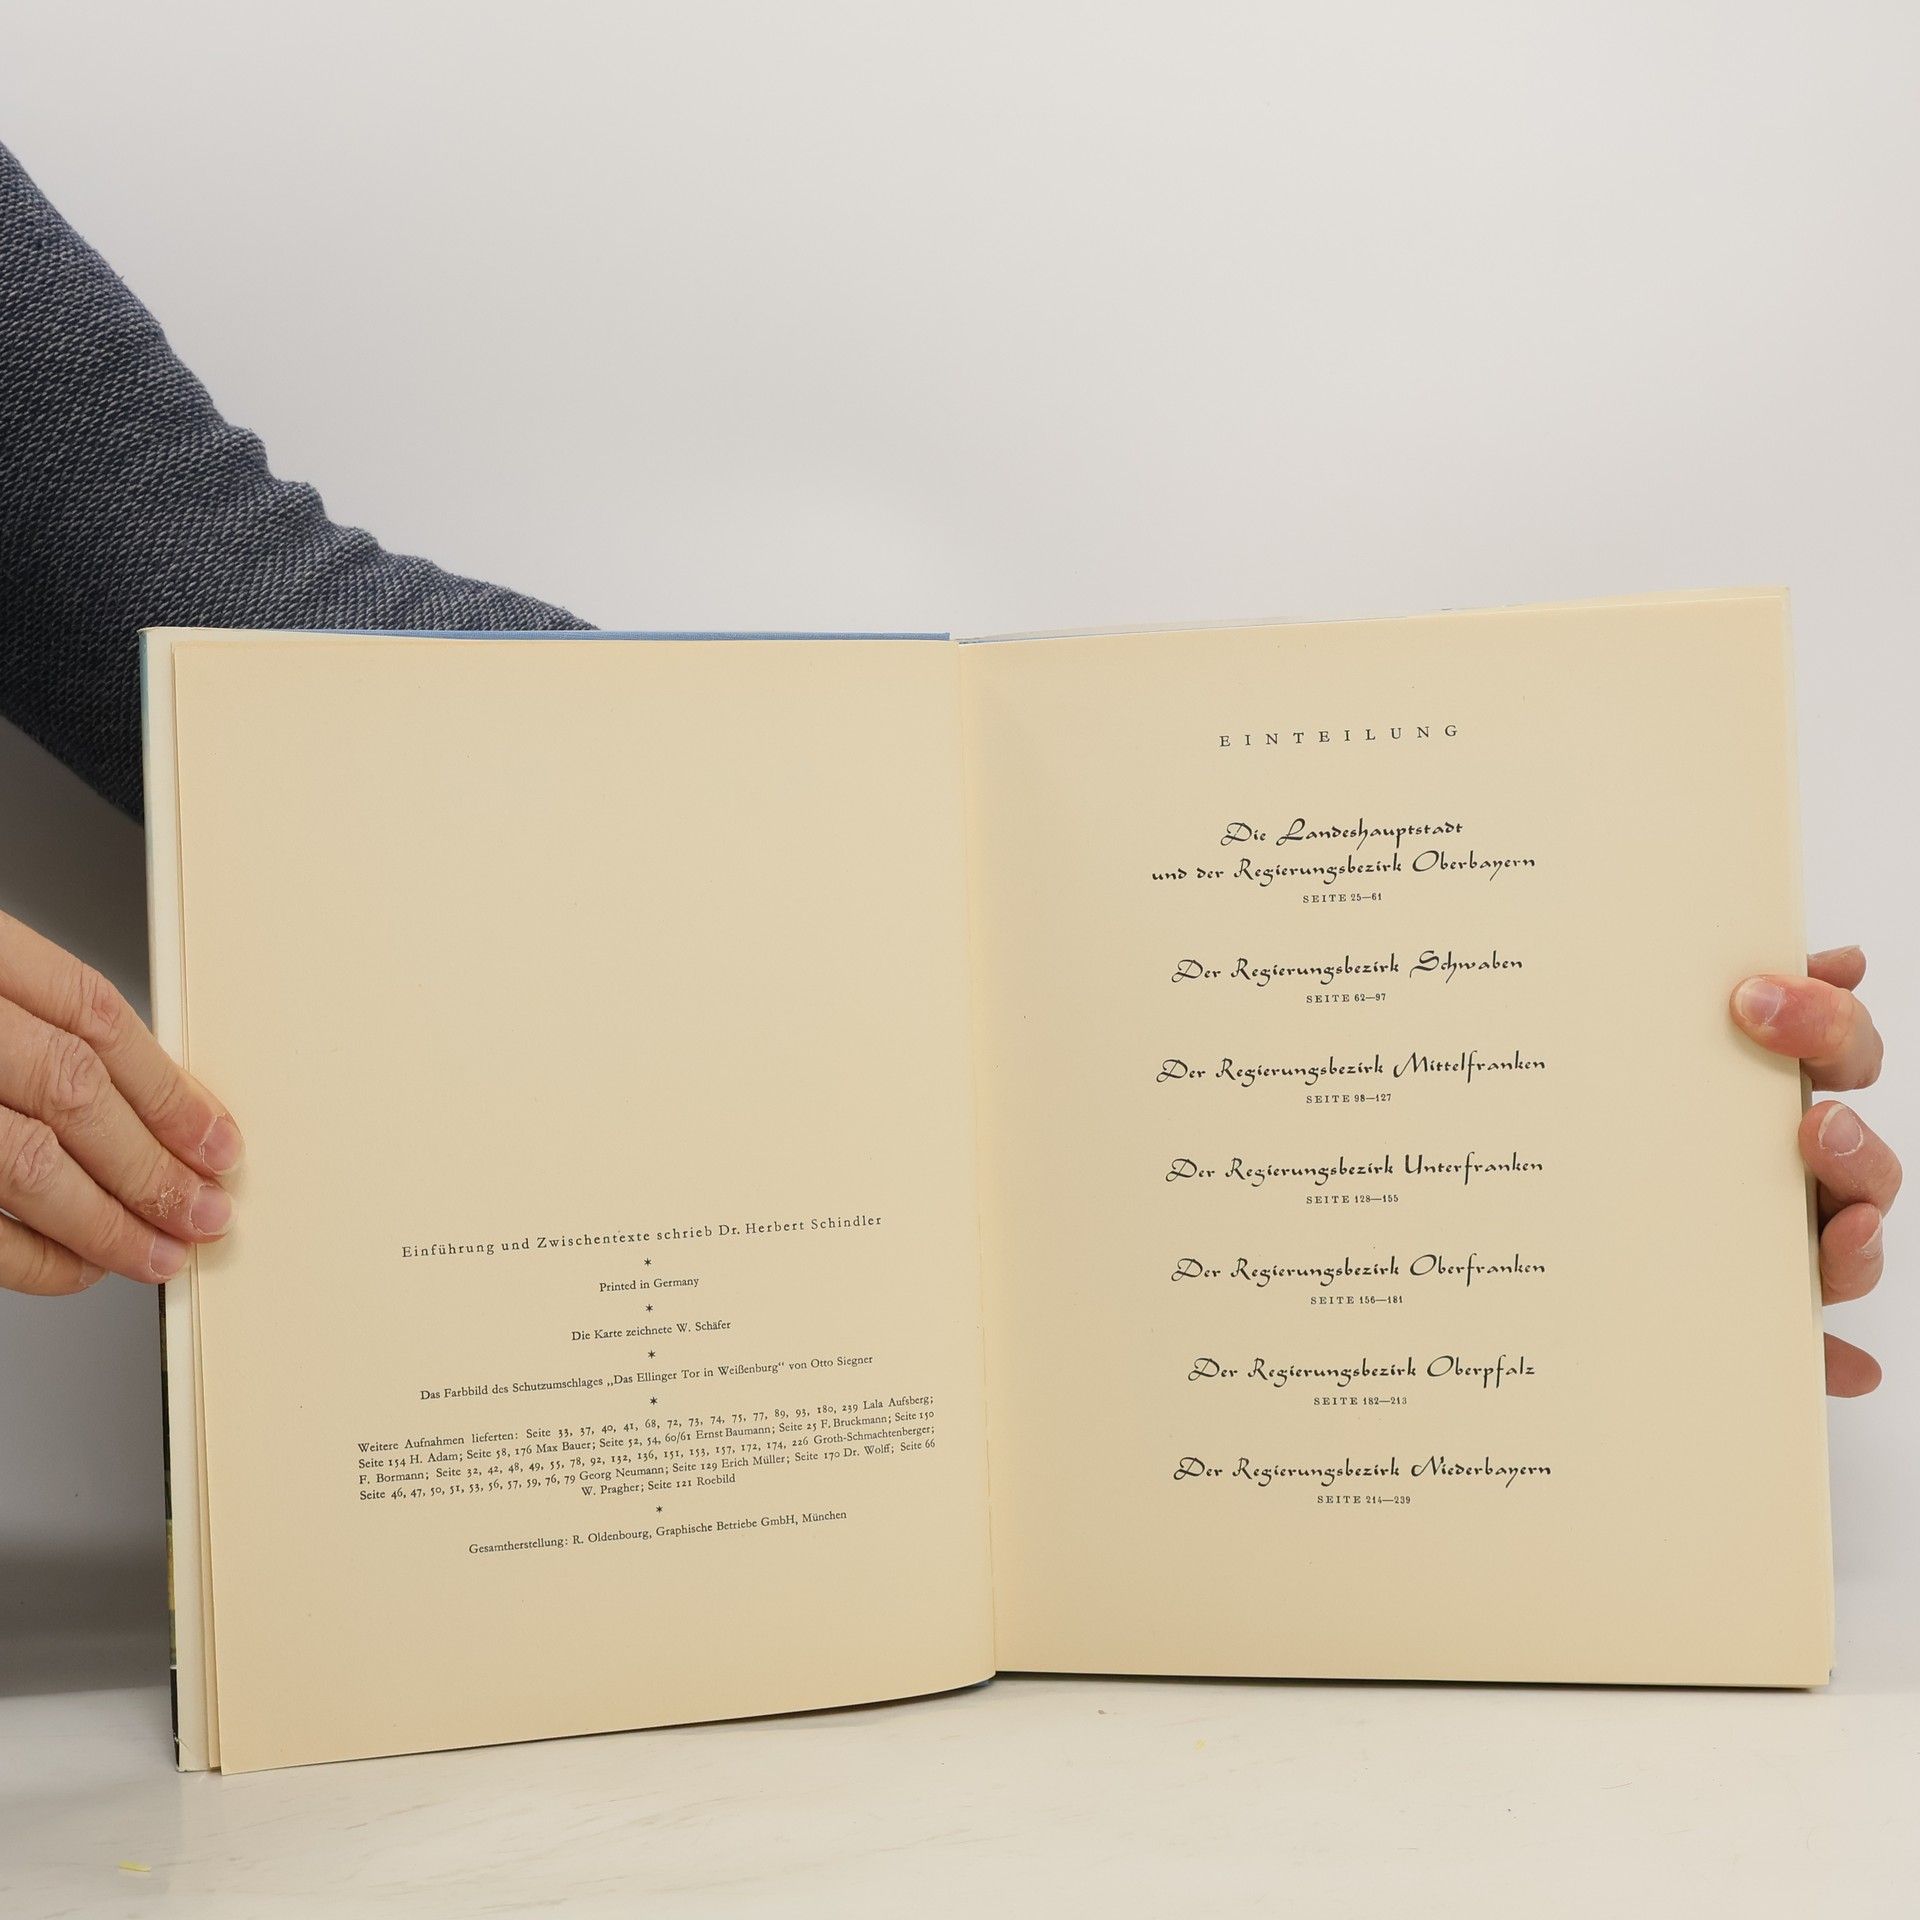 Einführung und Zwischentexte schrieb Dr. Herbert Schindler
*
Printed in Germany
*
Die Karte zeichnete W. Schäfer
*
Das Farbbild des Schutzumschlages „Das Ellinger Tor in Weißenburg“ von Otto Siegner
*
Weitere Aufnahmen lieferten: Seite 33, 37, 40, 41, 68, 72, 73, 74, 75, 77, 89, 93, 180, 239 Lala Aufsberg;
Seite 154 H. Adam; Seite 58, 176 Max Bauer; Seite 52, 54, 60/61 Ernst Baumann; Seite 25 F. Bruckmann; Seite 150
F. Bormann; Seite 32, 42, 48, 49, 55, 78, 92, 132, 136, 151, 153, 157, 172, 174, 226 Groth-Schmachtenberger;
Seite 46, 47, 50, 51, 53, 56, 57, 59, 76, 79 Georg Neumann; Seite 129 Erich Müller; Seite 170 Dr. Wolff; Seite 66
W. Pragher; Seite 121 Roebild
*
Gesamtherstellung: R. Oldenbourg, Graphische Betriebe GmbH, München
EINTEILUNG
Die Landeshauptstadt
und der Regierungsbezirk Oberbayern
SEITE 25—61
Der Regierungsbezirk Schwaben
SEITE 62—97
Der Regierungsbezirk Mittelfranken
SEITE 98—127
Der Regierungsbezirk Unterfranken
SEITE 128—155
Der Regierungsbezirk Oberfranken
SEITE 156—181
Der Regierungsbezirk Oberpfalz
SEITE 182—213
Der Regierungsbezirk Niederbayern
SEITE 214—239